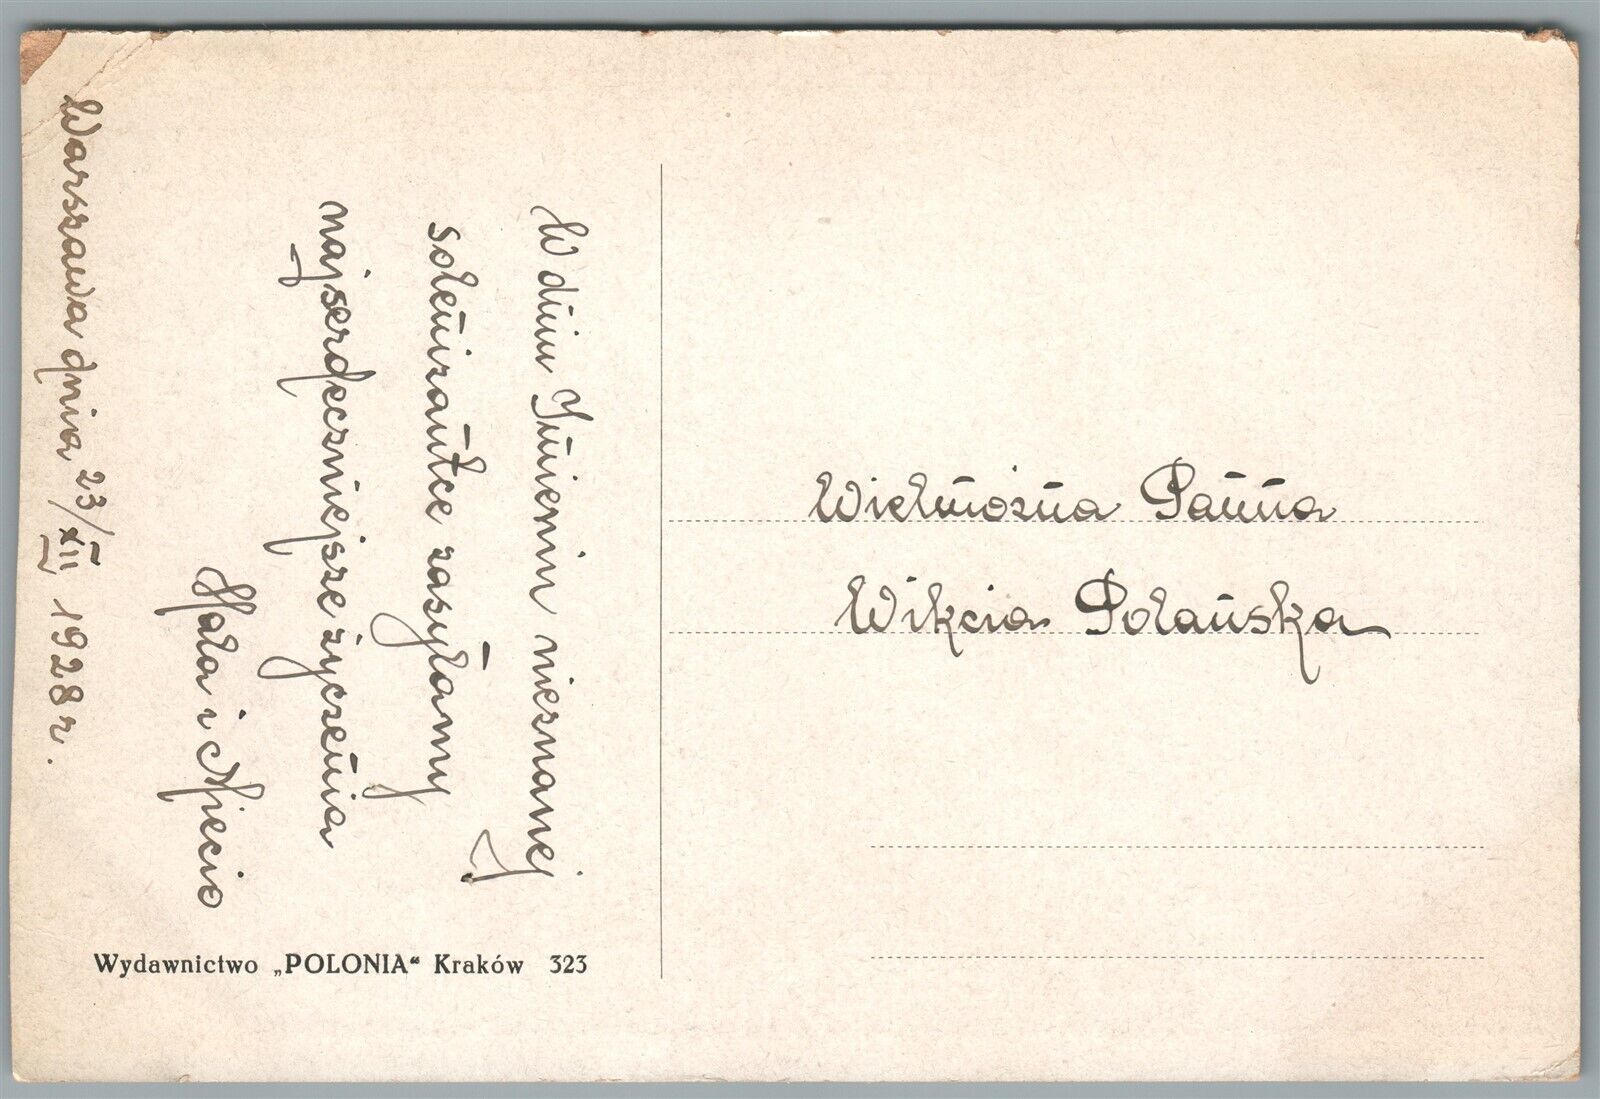 Warszawa dnia 23/XII 1928 r.
W dniu Imienin nieznanej
solenizantce zasyłamy
najserdeczniejsze życzenia
Hala i Miecio
Wydawnictwo „POLONIA“ Kraków 323
Wielmożna Panna
Wikcia Polańska